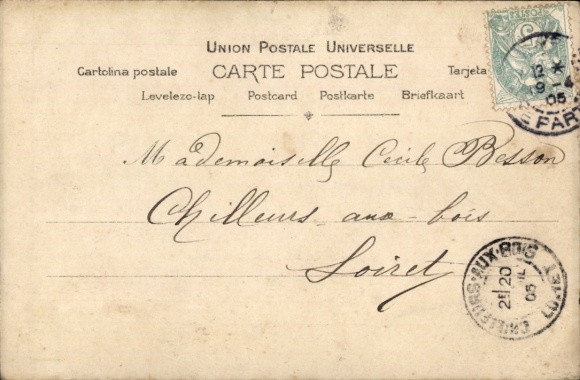 UNION POSTALE UNIVERSELLE
Cartolina postale CARTE POSTALE Tarjeta
Levelezo-lap Postcard Postkarte Briefkaart
Mademoiselle Cécile Besson
Chilleurs-aux-bois
Loiret
12 *
9 - 4
05
E PAR
CHILLEURS-AUX-BOIS
20
05
LOIRET